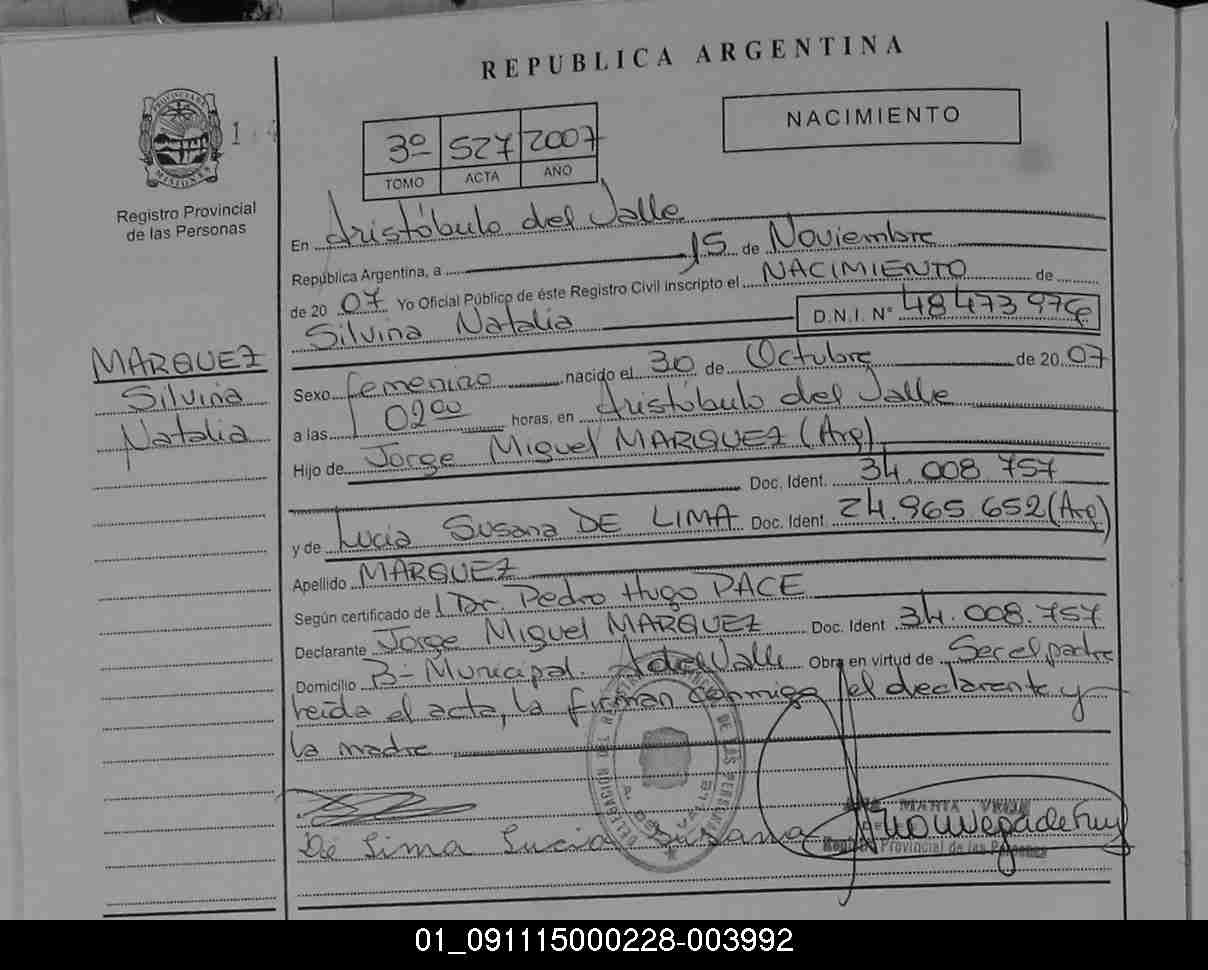 REPUBLICA ARGENTINA
PROVINCIA DE
MISIONES
Registro Provincial
de las Personas
NACIMIENTO
3º 527 2007
TOMO ACTA AÑO
En Aristóbulo del Valle
República Argentina, a 15 de Noviembre
de 20 07 Yo Oficial Público de éste Registro Civil inscripto el NACIMIENTO de
Silvina Natalia D.N.I. N° 48 473 976
MARQUEZ
Silvina
Natalia
Sexo femenino nacido el 30 de Octubre de 20 07
a las 02 00 horas, en Aristóbulo del Valle
Hijo de Jorge Miguel MARQUEZ (Arg)
Doc. Ident. 34.008.757
y de Lucia Susana DE LIMA Doc. Ident. 24.965 652 (Arg)
Apellido MARQUEZ
Según certificado de Dr. Pedro Hugo PACE
Declarante Jorge Miguel MARQUEZ Doc. Ident 34.008.757
Domicilio B- Municipal. A del Valle Obra en virtud de Ser el padre
leida el acta, la firman conmigo el declarante y
la madre
De Lima Lucia Susana
Registro Provincial de las Personas
01_091115000228-003992